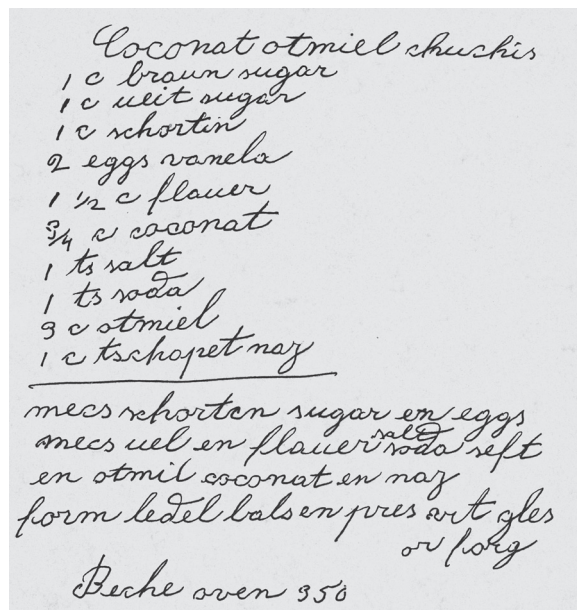 Coconat otmiel chuchis
1 c braun sugar
1 c ueit sugar
1 c schortin
2 eggs vanela
1 1/2 c flauer
3/4 c coconat
1 ts salt
1 ts soda
3 c otmiel
1 c tschapet naz
mecs schorten sugar en eggs
mecs uel en flauer salt soda seft
en otmil coconat en naz
form ledel bals en pres vit gles
or forg
Beche oven 350